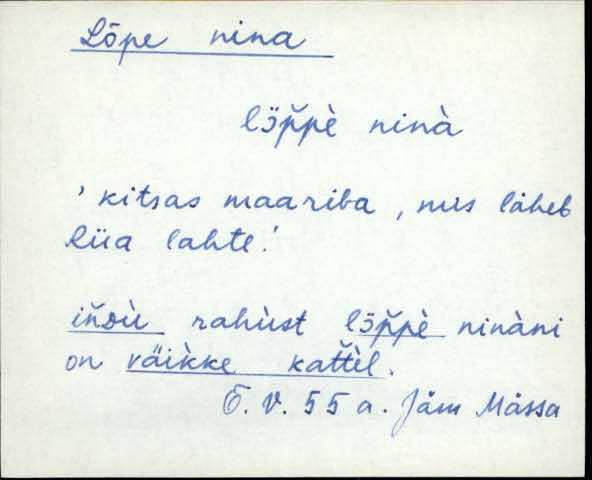 Lõpe nina
lɔ̈p̆pè ninà
' kitsas maariba, mis läheb
Riia lahte.'
iňDù rahùst lɔ̈p̆pè ninàni
on väìkke kat̆tèl.
E. V. 55 a. Jäm Mässa